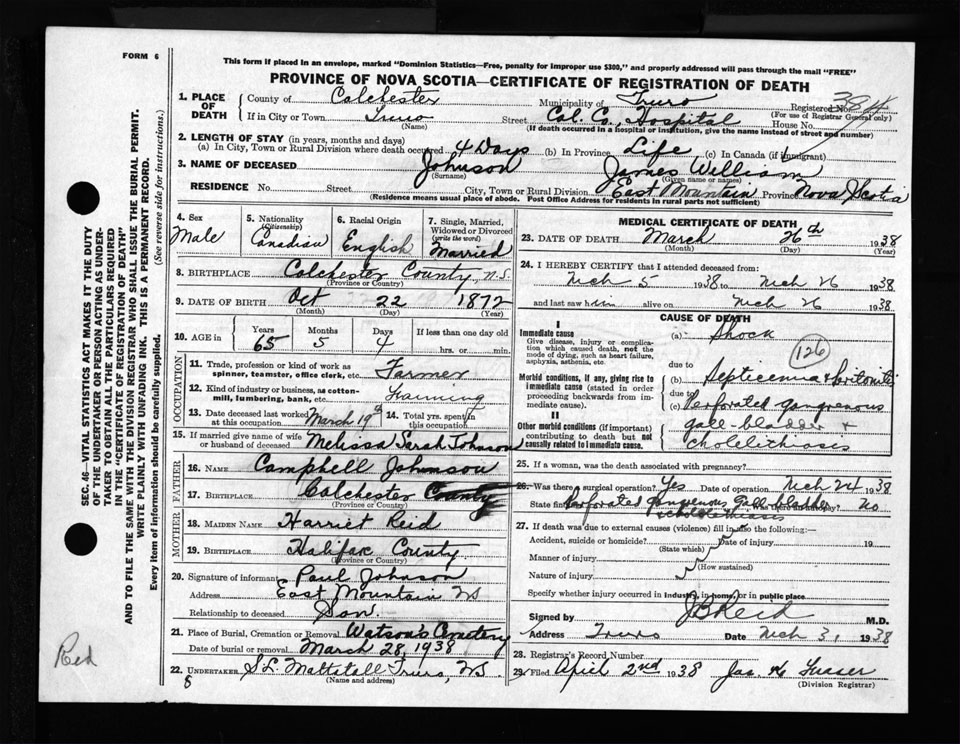 FORM 6
This form if placed in an envelope, marked "Dominion Statistics—Free, penalty for improper use $300," and properly addressed will pass through the mail "FREE"
PROVINCE OF NOVA SCOTIA—CERTIFICATE OF REGISTRATION OF DEATH
384
1. PLACE OF DEATH
County of Colchester Municipality of Truro Registered No.
(For use of Registrar General only)
If in City or Town Truro Street Col. Co. Hospital House No.
(Name) (If death occurred in a hospital or institution, give the name instead of street and number)
2. LENGTH OF STAY (in years, months and days)
(a) In City, Town or Rural Division where death occurred 4 Days (b) In Province Life (c) In Canada (if immigrant)
3. NAME OF DECEASED Johnson James William
(Surname) (Given name or names)
RESIDENCE No. Street City, Town or Rural Division East Mountain Province Nova Scotia
(Residence means usual place of abode. Post Office Address for residents in rural parts not sufficient)
4. Sex Male
5. Nationality (Citizenship) Canadian
6. Racial Origin English
7. Single, Married, Widowed or Divorced (write the word) Married
8. BIRTHPLACE Colchester County, N.S.
(Province or Country)
9. DATE OF BIRTH Oct 22 1872
(Month) (Day) (Year)
10. AGE in Years 65 Months 5 Days 4 If less than one day old
hrs. or min.
OCCUPATION
11. Trade, profession or kind of work as spinner, teamster, office clerk, etc. Farmer
12. Kind of industry or business, as cotton-mill, lumbering, bank, etc. Farming
13. Date deceased last worked at this occupation March 19
14. Total yrs. spent in this occupation
15. If married give name of wife or husband of deceased Melissa Serah Johnson
FATHER
16. Name Campbell Johnson
17. Birthplace Colchester County
(Province or Country)
MOTHER
18. Maiden Name Harriet Reid
19. Birthplace Halifax County
(Province or Country)
20. Signature of informant Paul Johnson
Address East Mountain NS
Relationship to deceased Son
21. Place of Burial, Cremation or Removal Watson's Cemetery
Date of burial or removal March 28, 1938
22. UNDERTAKER S.L. Mattatall Truro, NS
(Name and address)
8
MEDICAL CERTIFICATE OF DEATH
23. DATE OF DEATH March 26th 1938
(Month) (Day) (Year)
24. I HEREBY CERTIFY that I attended deceased from:
Mch 5 1938 to Mch 26 1938
and last saw him alive on Mch 26 1938
CAUSE OF DEATH
I
Immediate cause
Give disease, injury or complication which caused death, not the mode of dying, such as heart failure, asphyxia, asthenia, etc.
(a) Shock
126
due to
Morbid conditions, if any, giving rise to immediate cause (stated in order proceeding backwards from immediate cause).
(b) Septicemia & peritonitis
due to
(c) Perforated gangrenous gall-bladder & cholelithiasis
II
Other morbid conditions (if important) contributing to death but not causally related to immediate cause.
25. If a woman, was the death associated with pregnancy?
26. Was there a surgical operation? Yes Date of operation Mch 24 1938
State findings Perforated gangrenous gall bladder Was there an autopsy? no
cholelithiasis
27. If death was due to external causes (violence) fill in also the following:—
Accident, suicide or homicide? Date of injury 19
(State which)
Manner of injury
(How sustained)
Nature of injury
Specify whether injury occurred in Industry, in home, or in public place
Signed by J B Reid M.D.
Address Truro Date Mch 31 1938
28. Registrar's Record Number
29. Filed April 2nd 1938 Jas H Fraser
(Division Registrar)
SEC. 46—VITAL STATISTICS ACT MAKES IT THE DUTY
OF THE UNDERTAKER OR PERSON ACTING AS UNDER-
TAKER TO OBTAIN ALL THE PARTICULARS REQUIRED
IN THE "CERTIFICATE OF REGISTRATION OF DEATH"
AND TO FILE THE SAME WITH THE DIVISION REGISTRAR WHO SHALL ISSUE THE BURIAL PERMIT.
WRITE PLAINLY WITH UNFADING INK. THIS IS A PERMANENT RECORD.
Every item of information should be carefully supplied. (See reverse side for instructions.)